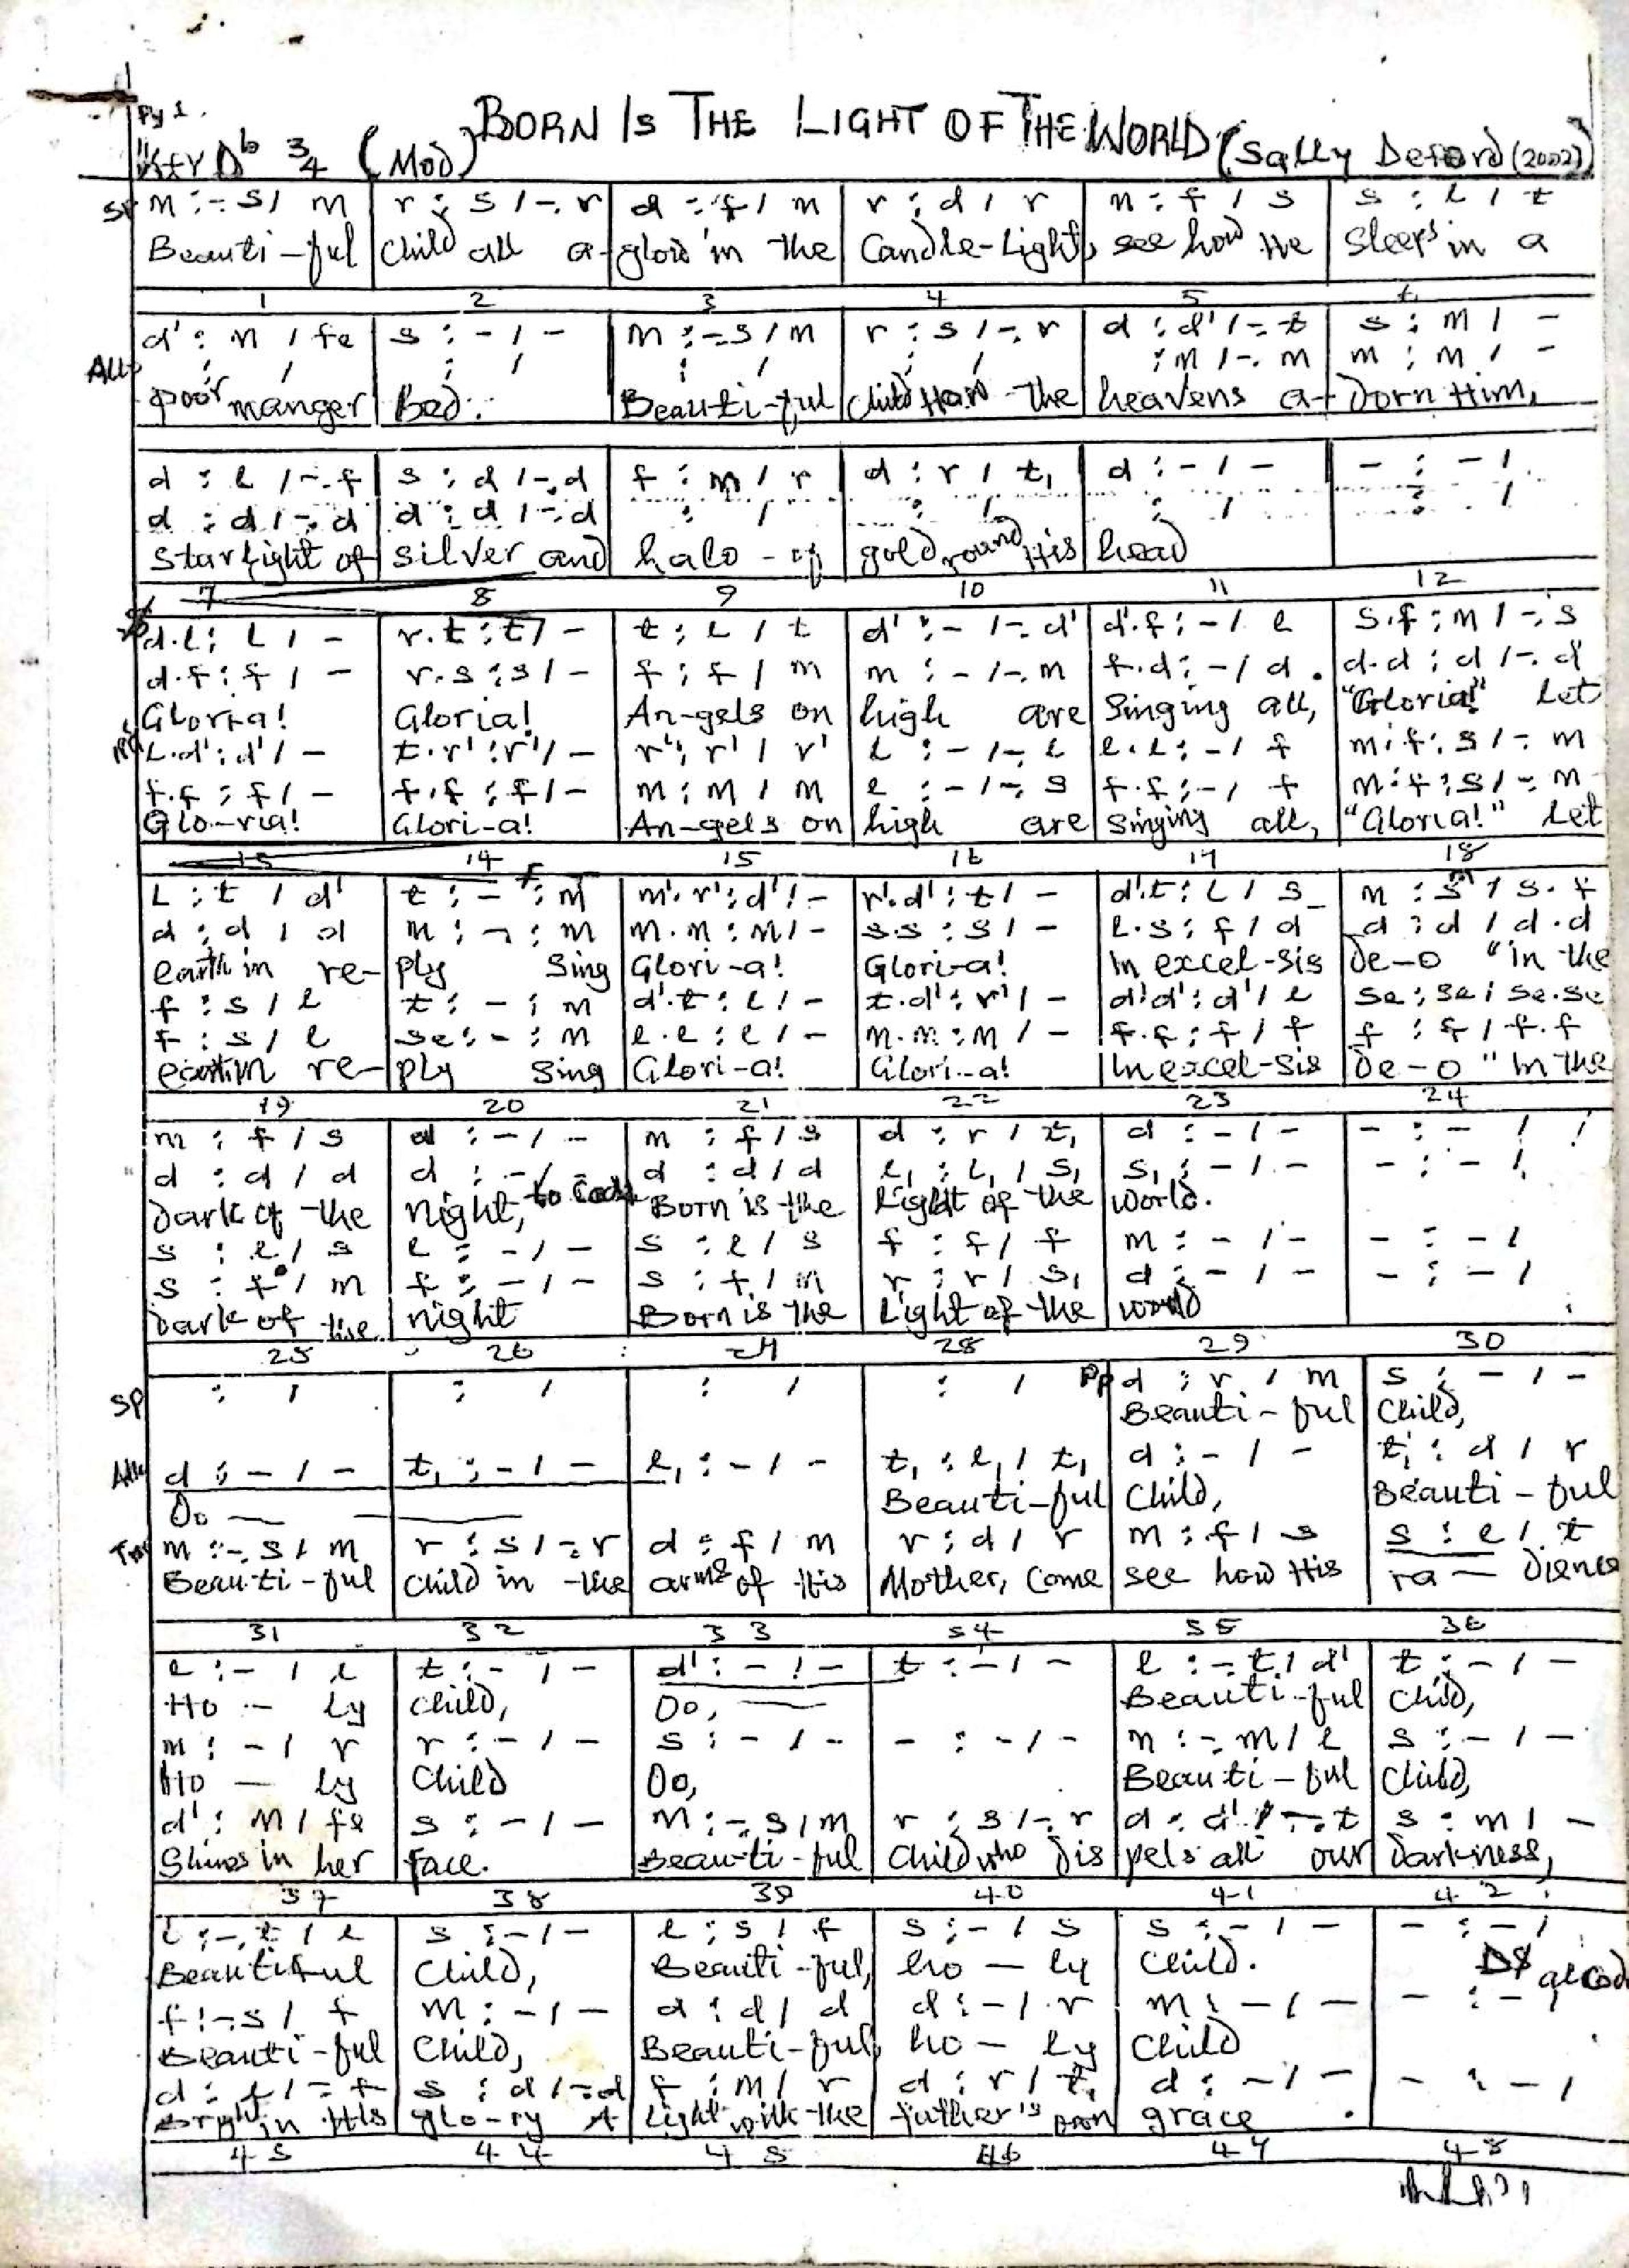 Pg 1.
BORN IS THE LIGHT OF THE WORLD (Sally Deford (2002))
Key Db 3/4 (Mod)
m :-. s / m | r : s / -. r | d : f / m | r : d / r | m : f / s | s : l / t
Beauti-ful | Child all a- | glow in the | Candle-Light, | see how He | sleeps in a
1 2 3 4 5 6
d' : m / fe | s : - / - | m :-. s / m | r : s / -. r | d : d' / -. t | s : m / -
Alto : / | : / | : / | : / | : m / -. m | m : m / -
poor manger | Bed. | Beauti-ful | Child How the | heavens a- | dorn Him,
d : l / -. f | s : d / -. d | f : m / r | d : r / t, | d : - / - | - : - /
d : d / -. d | d : d / -. d | : / | : / | : / | : /
Starlight of | silver and | halo - of | gold round His | head
7 8 9 10 11 12
d.l : l / - | r.t : t / - | t : l / t | d' : - / -. d' | d'.f : - / l | s.f : m / -. s
d.f : f / - | r.s : s / - | f : f / m | m : - / -. m | f.d : - / d | d.d : d / -. d
Gloria! | Gloria! | An-gels on | high are | Singing all, | "Gloria!" Let
l.d' : d' / - | t.r' : r' / - | r' : r' / r' | l : - / -. l | l.l : - / f | m.f : s / -. m
f.f : f / - | f.f : f / - | m : m / m | l : - / -. s | f.f : - / f | m.f : s / -. m
Glo-ria! | Glori-a! | An-gels on | high are | Singing all, | "Gloria!" Let
13 14 15 16 17 18
l : t / d' | t : - : m | m'.r' : d' / - | r'.d' : t / - | d'.t : l / s | m : s / s.f
d : d / d | m : - : m | m.m : m / - | s.s : s / - | l.s : f / d | d : d / d.d
earth in re- | ply Sing | Glori-a! | Glori-a! | In excel-sis | De-o "in the
f : s / l | t : - : m | d'.t : l / - | t.d' : r' / - | d'.d' : d' / l | se : se / se.se
f : s / l | se : - : m | l.l : l / - | m.m : m / - | f.f : f / f | f : f / f.f
earth in re- | ply Sing | Glori-a! | Glori-a! | In excel-sis | De-o "In the
19 20 21 22 23 24
m : f / s | d : - / - | m : f / s | d : r / t, | d : - / - | - : - /
d : d / d | d : - / - | d : d / d | l, : l, / s, | s, : - / - | - : - /
Dark of the | Night, to Coda | Born is the | Light of the | World.
s : l / s | l : - / - | s : l / s | f : f / f | m : - / - | - : - /
s : f / m | f : - / - | s : f / m | r : r / s, | d : - / - | - : - /
Dark of the | Night | Born is the | Light of the | World
25 26 27 28 29 30
SP : / | : / | : / | : / | pp d : r / m | s : - / -
Beauti-ful | Child,
Alto d : - / - | t, : - / - | l, : - / - | t, : l, / t, | d : - / - | t, : d / r
Oo | Beauti-ful | Child, | Beauti-ful
Ten m :-. s / m | r : s / -. r | d : f / m | r : d / r | m : f / s | s : l / t
Beau-ti-ful | Child in the | arms of His | Mother, Come | see how His | ra - dience
31 32 33 34 35 36
l : - / l | t : - / - | d' : - / - | t : - / - | l :-. t / d' | t : - / -
Ho - ly | Child, | Oo, | Beauti-ful | Child,
m : - / r | r : - / - | s : - / - | - : - / - | m :-. m / l | s : - / -
Ho - ly | Child | Oo, | Beauti-ful | Child,
d' : m / fe | s : - / - | m :-. s / m | r : s / -. r | d : d' / -. t | s : m / -
Shines in her | face. | Beau-ti-ful | Child who dis | pels all our | darkness,
37 38 39 40 41 42
l :-. t / l | s : - / - | l : s / f | s : - / s | s : - / - | - : - /
Beautiful | Child, | Beauti-ful, | ho - ly | Child. | DS al Coda
f :-. s / f | m : - / - | d : d / d | d : - / r | m : - / - | - : - /
Beauti-ful | Child, | Beauti-ful, | ho - ly | Child
d : l / -. f | s : d / -. d | f : m / r | d : r / t, | d : - / - | - : - /
Bright in His | glo-ry A | Light with the | father's own | grace
43 44 45 46 47 48